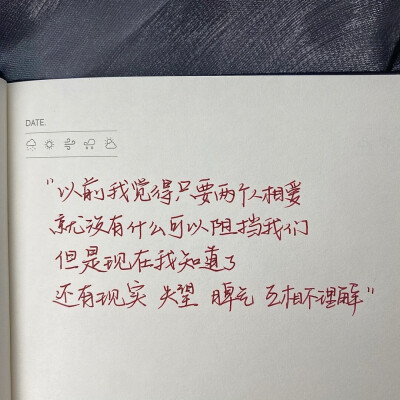 DATE.
“以前我觉得只要两个人相爱
就没有什么可以阻挡我们
但是现在我知道了
还有现实 失望 脾气 互相不理解”